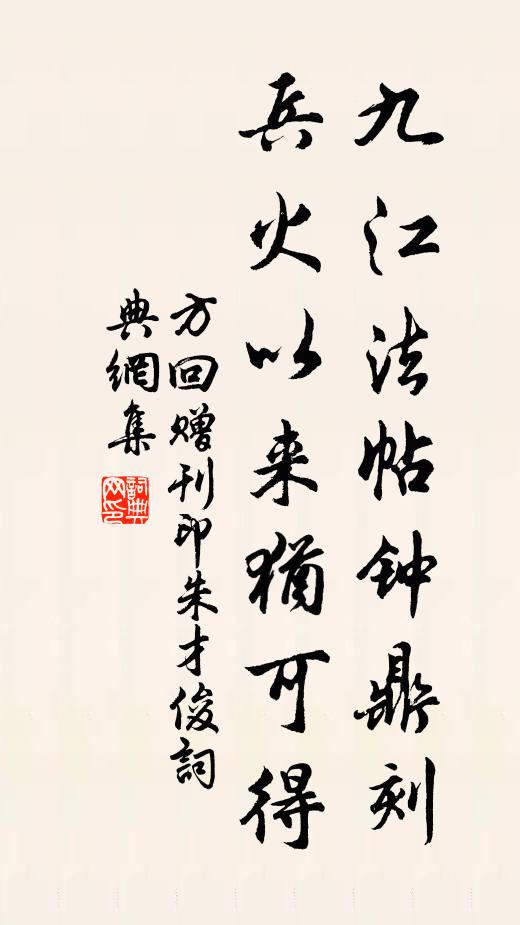 九江法帖钟鼎刻
兵火以来犹可得
方回赠刊印朱才俊詞
典網集
詞典网印